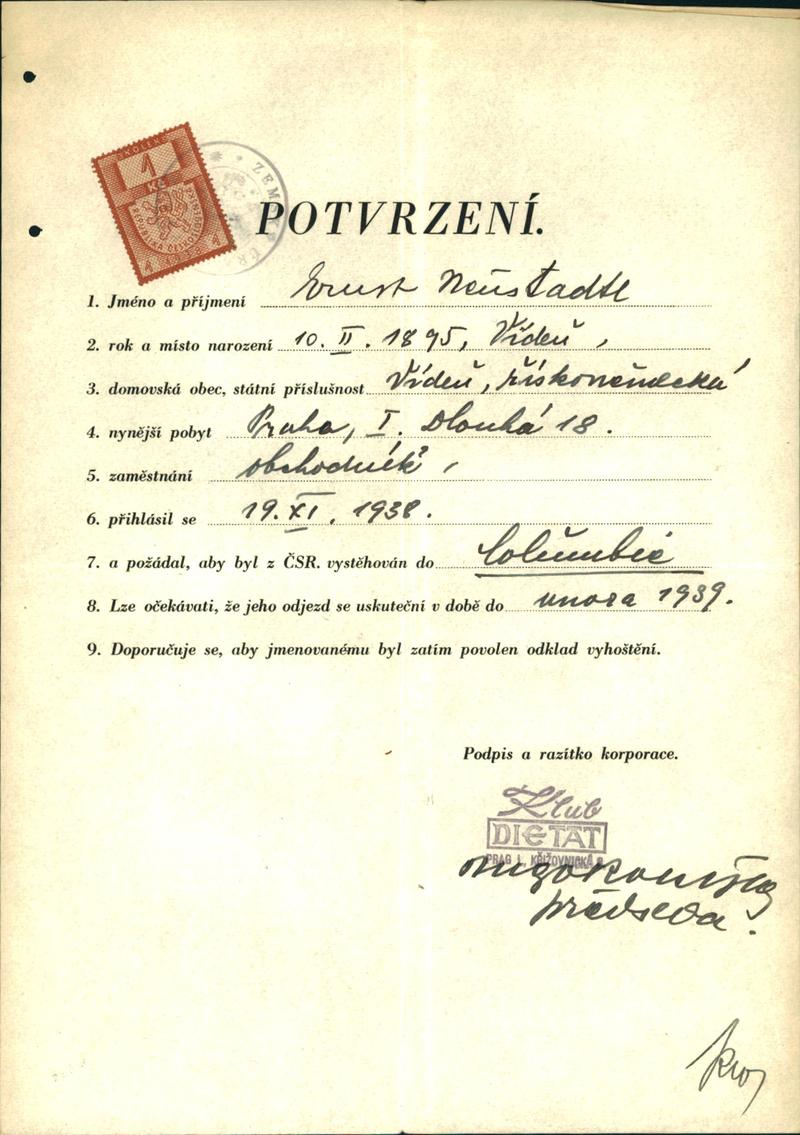 KOLEK
1
Kč
REPUBLIKA ČESKOSLOVENSKÁ
4 1938 4
ZEM
POTVRZENÍ.
1. Jméno a příjmení Ernst Neustadtl
2. rok a místo narození 10. II. 1895, Vídeň,
3. domovská obec, státní příslušnost Vídeň, říšskoněmecká
4. nynější pobyt Praha, I. Dlouhá 18.
5. zaměstnání obchodník,
6. přihlásil se 19. XI. 1938.
7. a požádal, aby byl z ČSR. vystěhován do Columbie
8. Lze očekávati, že jeho odjezd se uskuteční v době do února 1939.
9. Doporučuje se, aby jmenovanému byl zatím povolen odklad vyhoštění.
Podpis a razítko korporace.
Klub
DIETAT
PRAG I., KŘIŽOVNICKÁ
předseda.